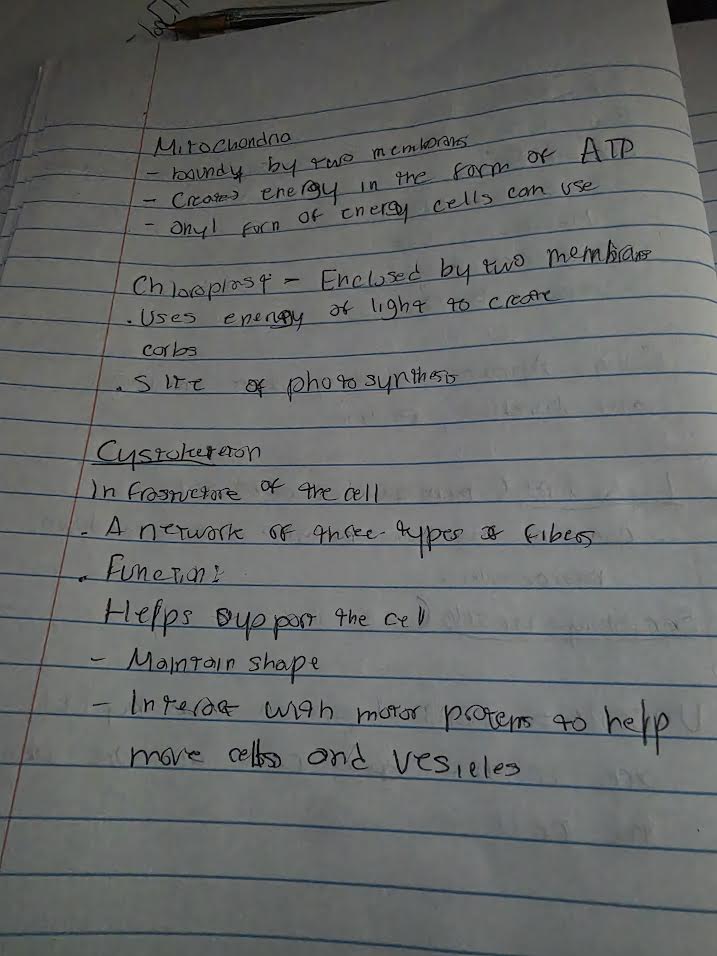 Mitochondria
- boundy by two membrans
- Creates energy in the form of ATP
- onyl form of energy cells can use
Chloroplast - Enclosed by two membrans
. Uses energy of light to create
carbs
. SITE of photosynthesis
Cystokereton
Infrastructure of the cell
. A network of three types of fibers
. Function:
Helps support the cell
- Maintain shape
- Interact with motor protens to help
move cells and vesicles